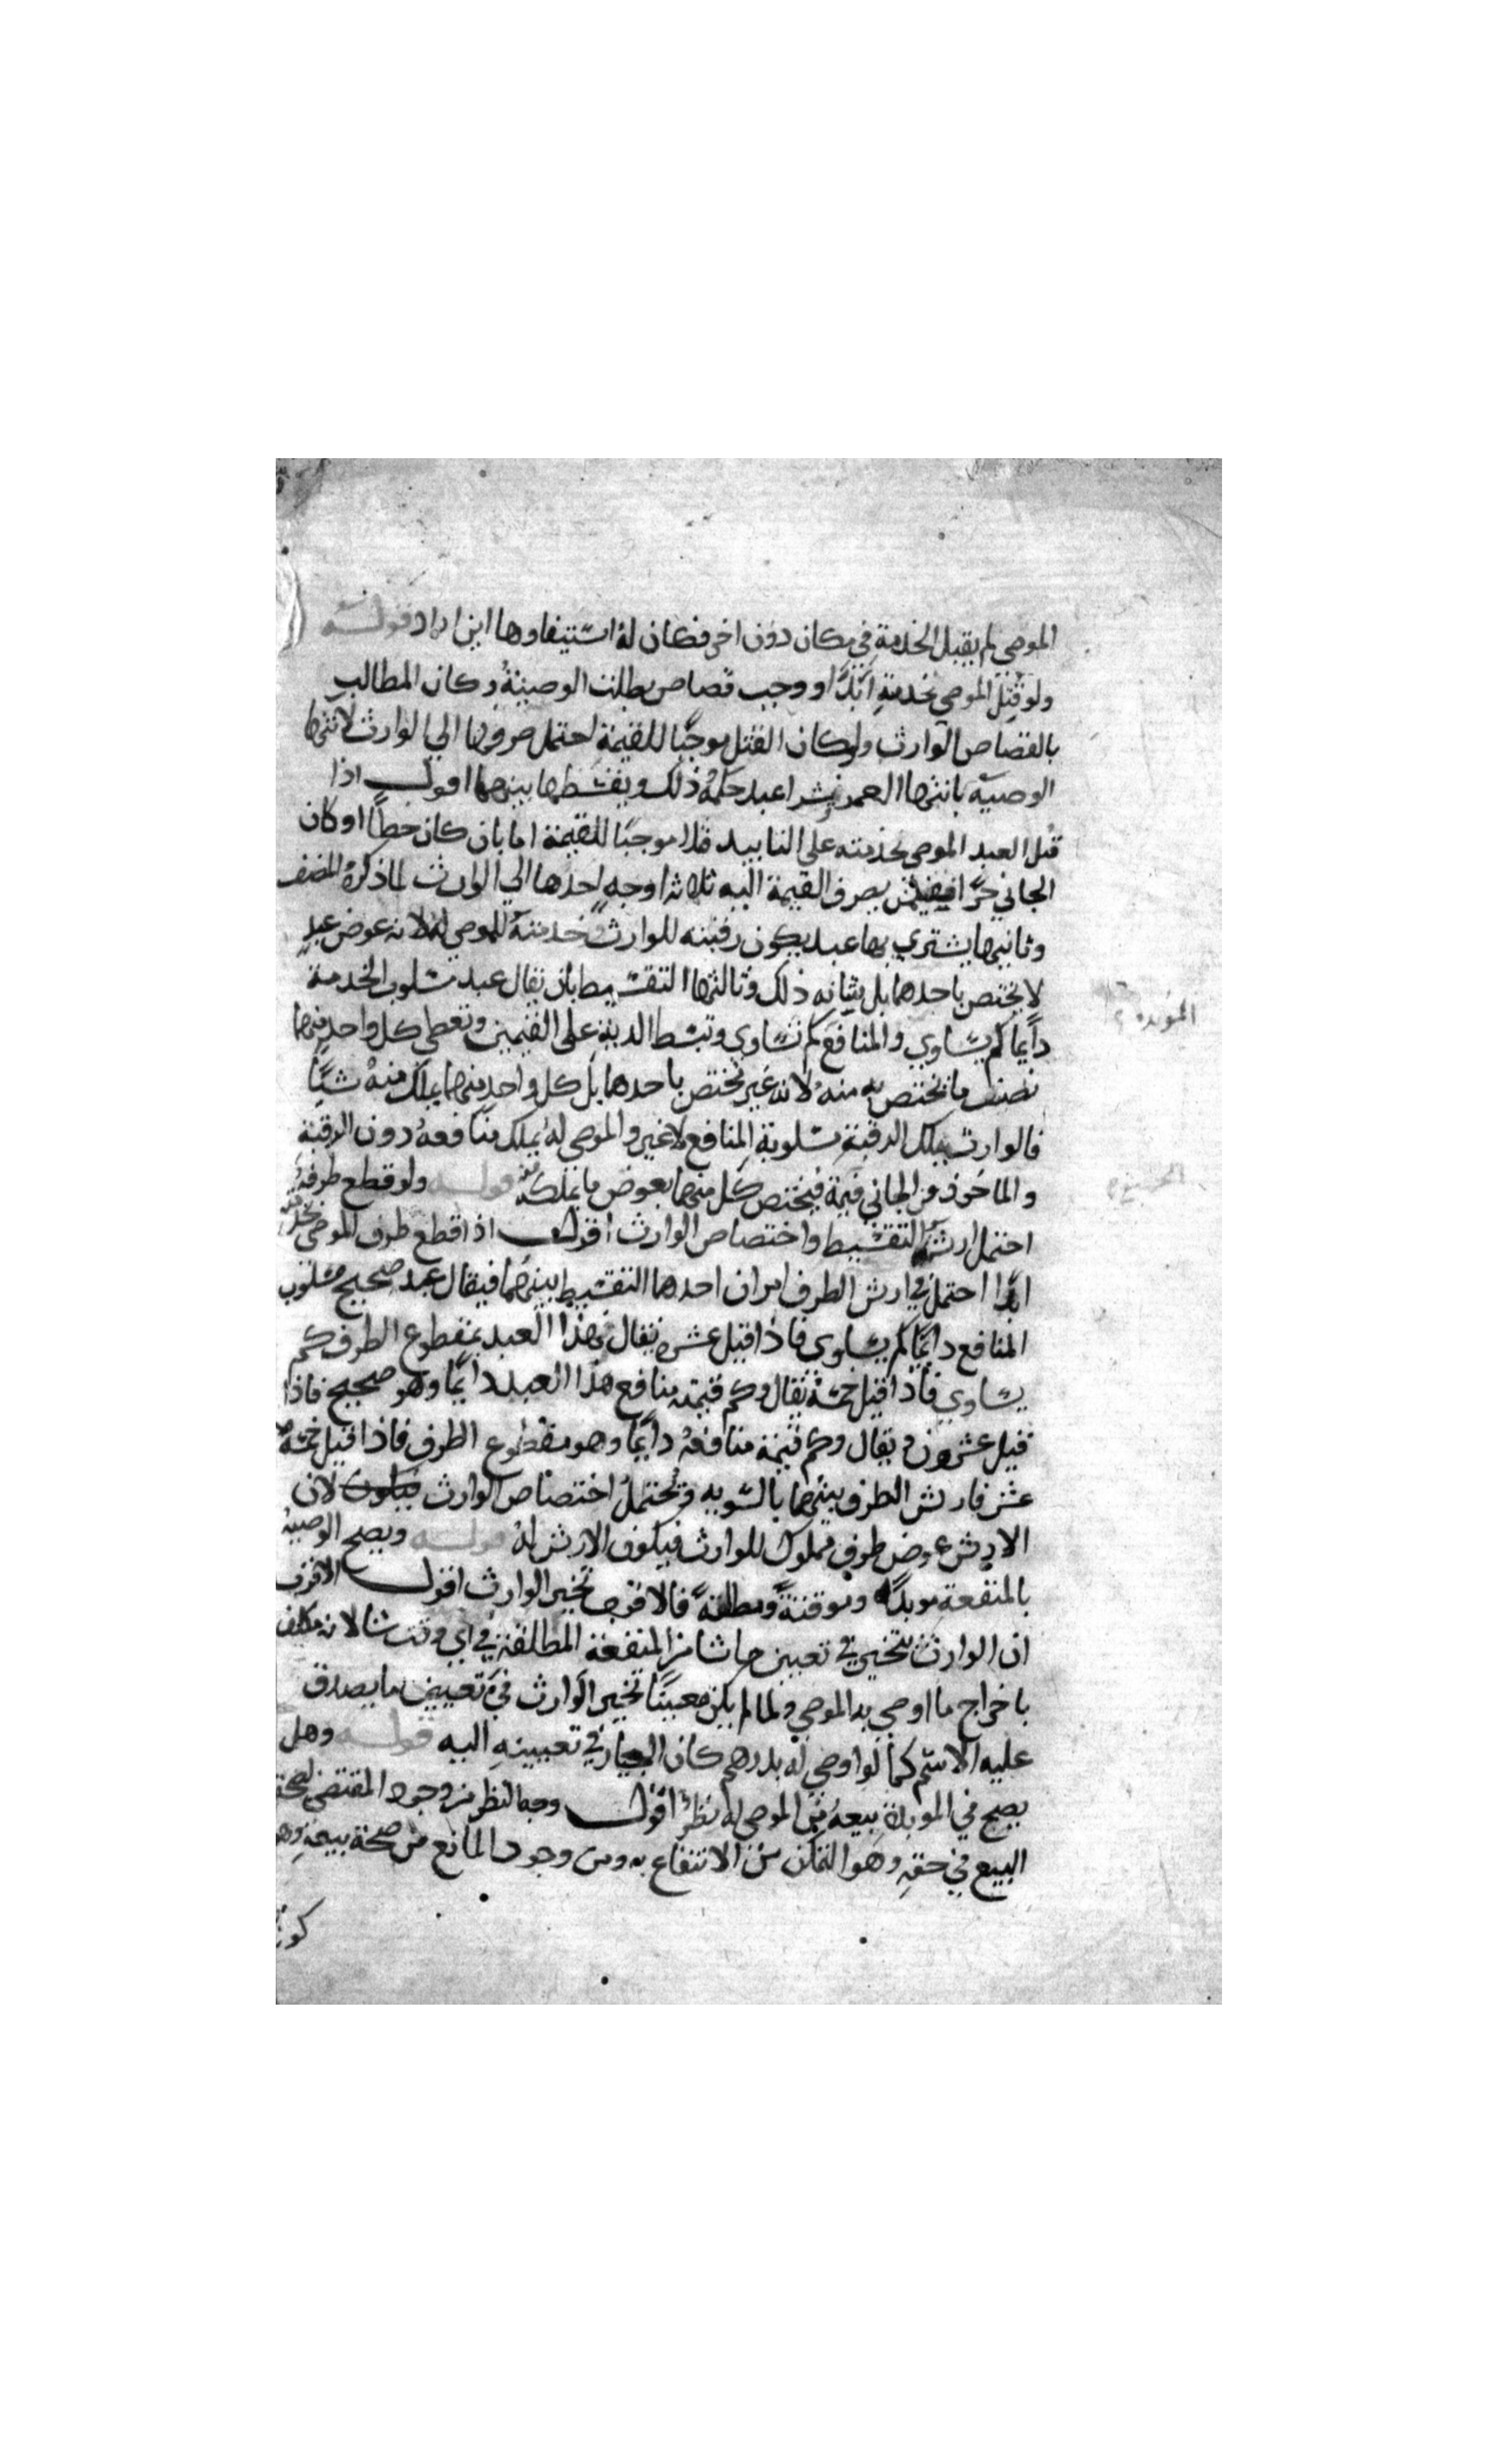 الموصي لم يقبل الخدمة في مكان دون اخر فكان له استيفاوها اين اراد قوله
ولو قتل الموصي بخدمته ابدًا ووجب قصاص بطلت الوصية وكان المطالب
بالقصاص الوارث ولو كان القتل موجبًا للقيمة احتمل صرفها الي الوارث لانتها
الوصية بانتها العمد وشرا عبد حكمه ذلك ويقسطها بينهما اقول اذا
قتل العبد الموصي بخدمته علي التابيد قتلا موجبًا للقيمة اما بان كان خطًا او كان
الجاني حرًا ففيمن يصرف القيمة اليه ثلاثة اوجه احدها الي الوارث لما ذكره المصنف
وثانيها يشتري بها عبد يكون رقبته للوارث وخدمته للموصي له لانه عوض عبد
لا يختص باحدهما بل بشانه ذلك وثالثها التقسيط بان يقال عبد مسلوب الخدمة
دايما كم يساوي والمنافع كم تساوي وتبسط الدية علي القيمتين وتعطي كل واحد منهما
نصف ما يختص به منه لانه غير مختص باحدهما بل كل واحد منهما يملك منه شيًا
فالوارث يملك الرقبة مسلوبة المنافع لا غير والموصي له يملك منافعه دون الرقبة
والماخوذ من الجاني قيمة فيختص كل منهما بعوض ما يملكه قوله ولو قطع طرفه
احتمل ارشه التقسيط واختصاص الوارث اقول اذا قطع طرف الموصي بخدمته
ابدًا احتمل في ارش الطرف امران احدهما التقسيط بينهما فيقال عبد صحيح مسلوب
المنافع دايمًا كم يساوي فاذا قيل عشره يقال بهذا العبد بمقطوع الطرف كم
يساوي فاذا قيل خمسة يقال وكم قيمة منافع هذا العبد دايمًا وهو صحيح فاذا
قيل عشرون ويقال وكم قيمة منافعه دايمًا وهو مقطوع الطرف فاذا قيل خمسة
عشر فارش الطرف بينهما بالسويه ويحتمل اختصاص الوارث فيكون لان
الارش عوض طرف مملوك للوارث فيكون الارش له قوله ويصح الوصية
بالمنفعة موبدًا وموقتةً ومطلقةً فالاقرب تخير الوارث اقول الاقرب
ان الوارث يتخير في تعيين ما شا من المنفعة المطلقة في اي وقت شا لانه مكلف
باخراج ما اوصي به الموصي ولما لم يكن معينًا تخير الوارث في تعيين ما يصدق
عليه الاسم كما لو اوصي له بدرهم كان الخيار في تعيينه اليه قوله وهل
يصح في الموبدة بيعه من الموصي له نظر اقول وجه النظر من وجود المقتضي لصحة
البيع في حقه وهو التمكن من الانتفاع به ومن وجود المانع من صحة بيعه وهو
الموبده